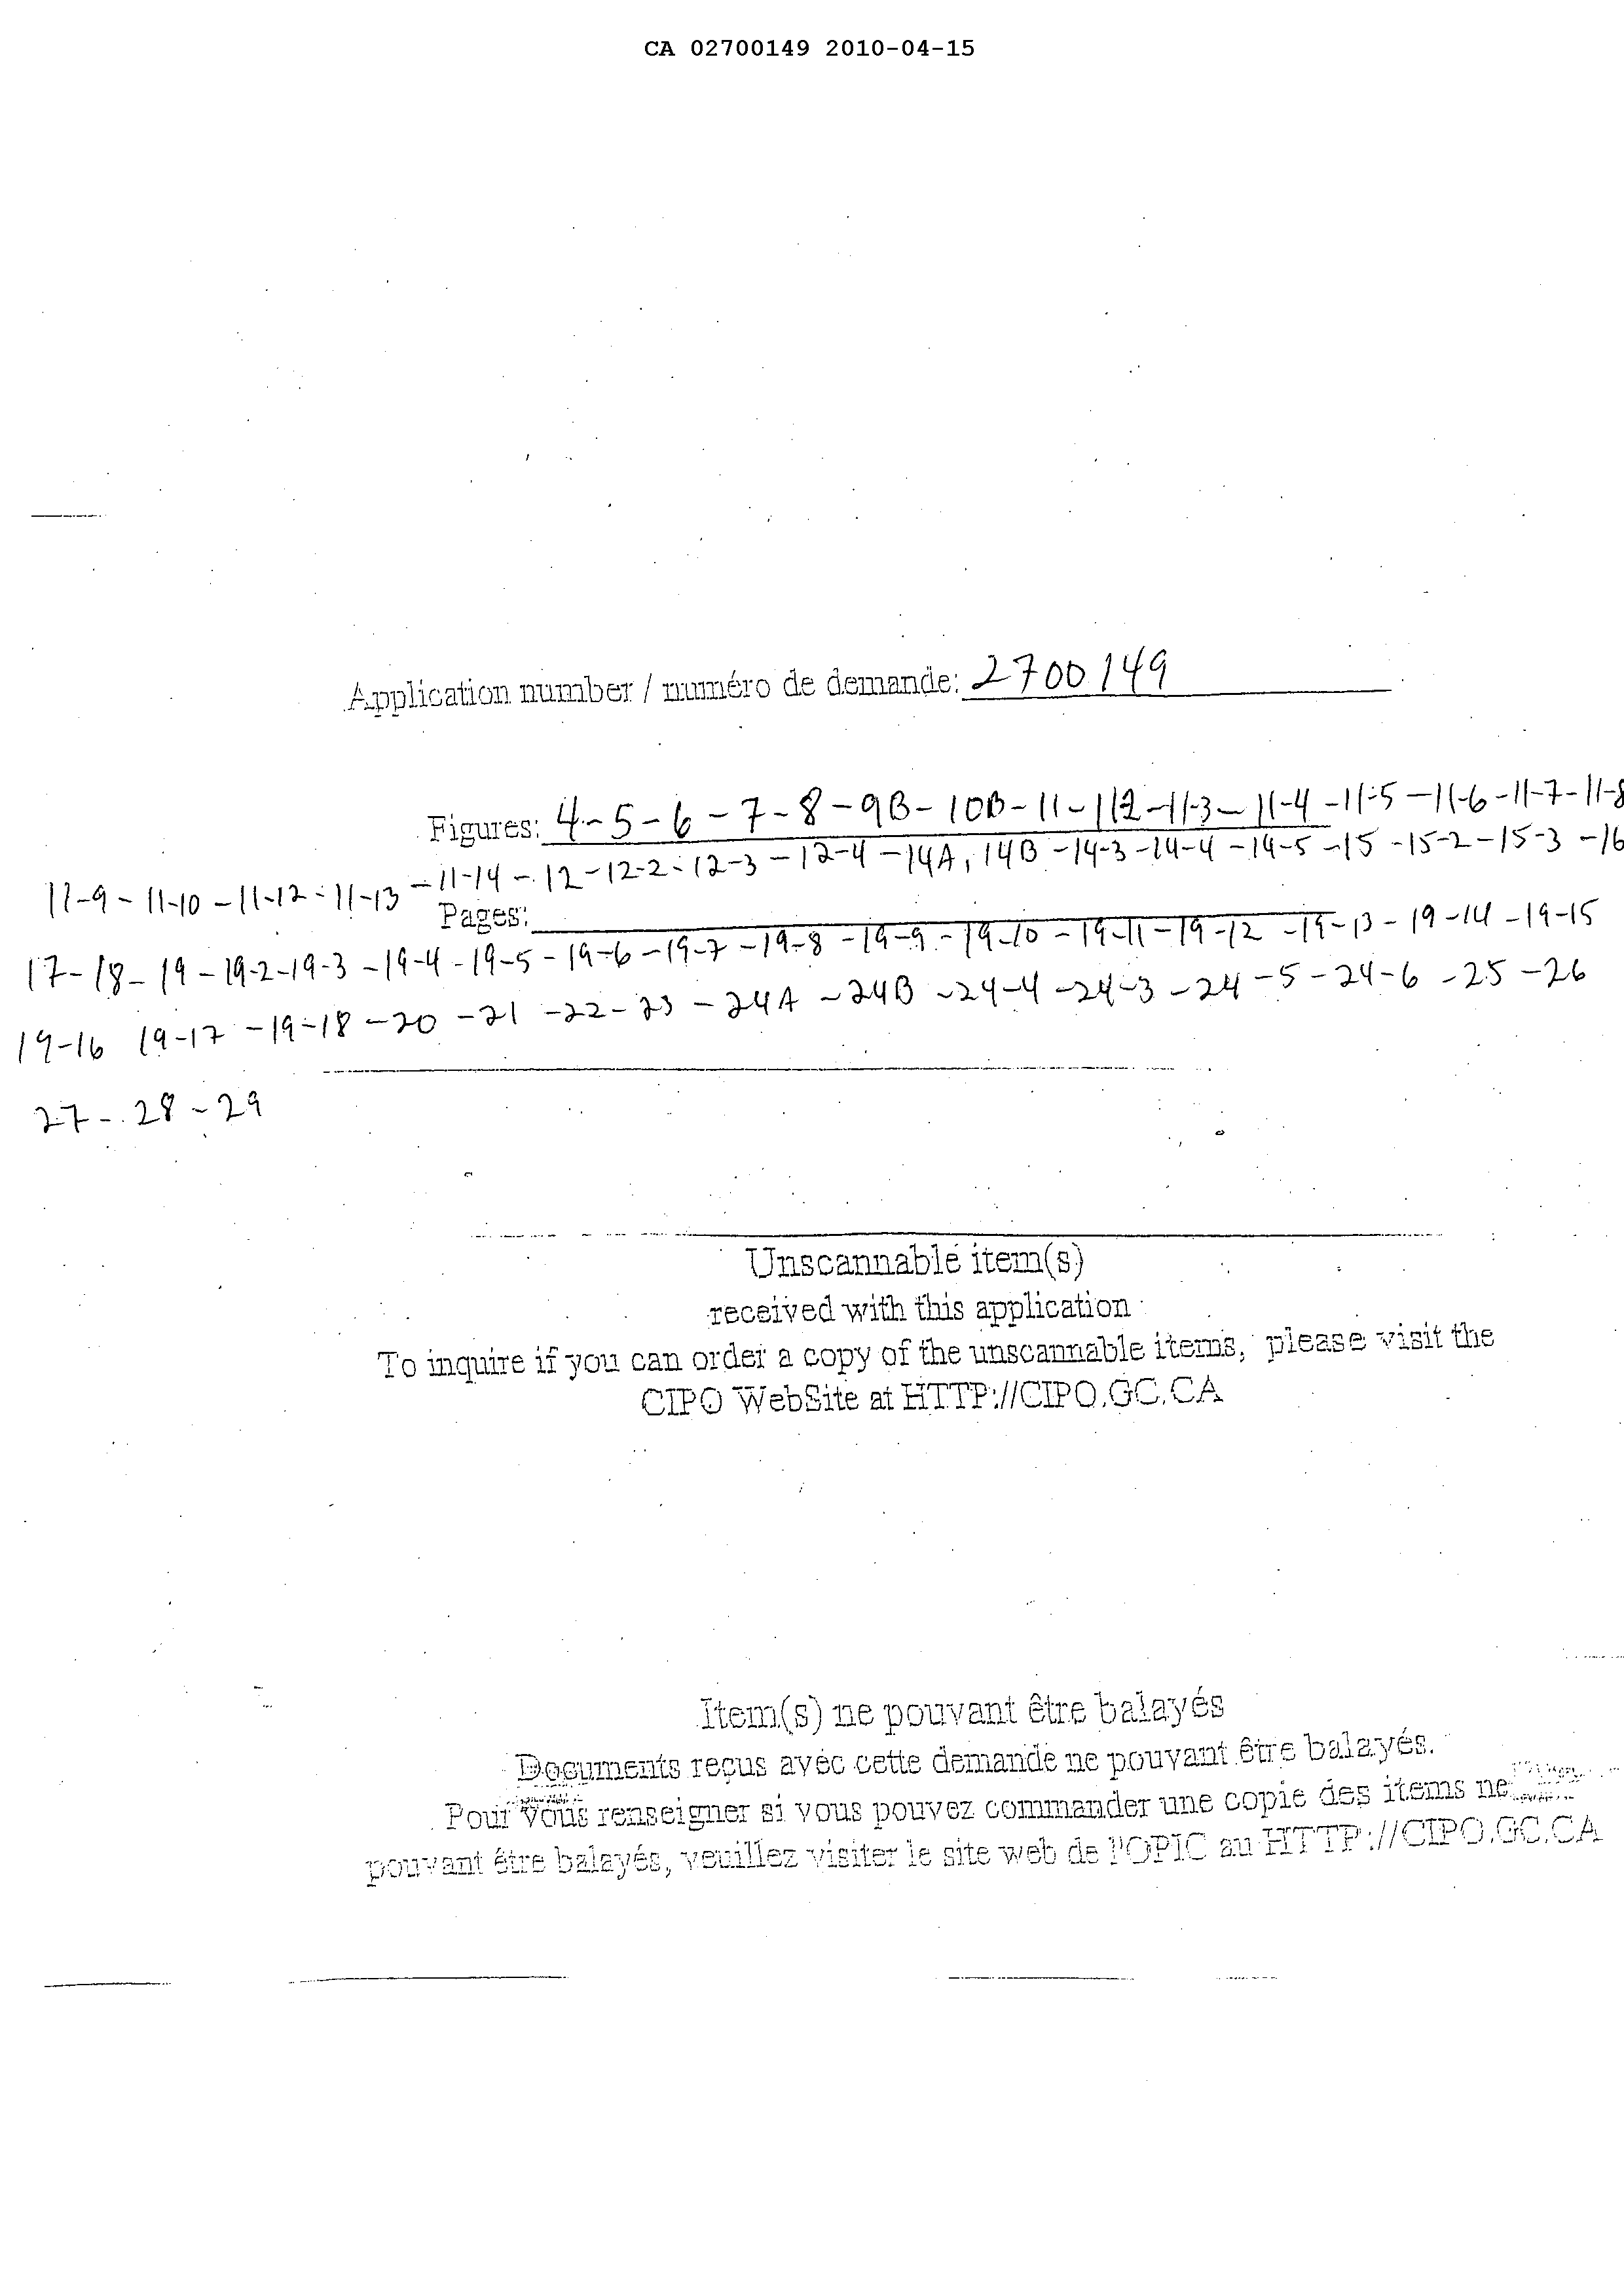 CA 02700149 2010-04-15
Application number / numéro de demande: 2700149
Figures: 4-5-6-7-8-9B-10B-11-112-11-3-11-4-11-5-11-6-11-7-11-8
11-9-11-10-11-12-11-13-11-14-12-12-2-12-3-12-4-14A, 14B-14-3-14-4-14-5-15-15-2-15-3-16
Pages:
17-18-19-19-2-19-3-19-4-19-5-19-6-19-7-19-8-19-9-19-10-19-11-19-12-19-13-19-14-19-15
19-16 19-17-19-18-20-21-22-23-24A-24B-24-4-24-3-24-5-24-6-25-26
27-28-29
Unscannable item(s)
received with this application
To inquire if you can order a copy of the unscannable items, please visit the
CIPO WebSite at HTTP://CIPO.GC.CA
Item(s) ne pouvant être balayés
Documents reçus avec cette demande ne pouvant être balayés.
Pour vous renseigner si vous pouvez commander une copie des items ne
pouvant être balayés, veuillez visiter le site web de l'OPIC au HTTP://CIPO.GC.CA